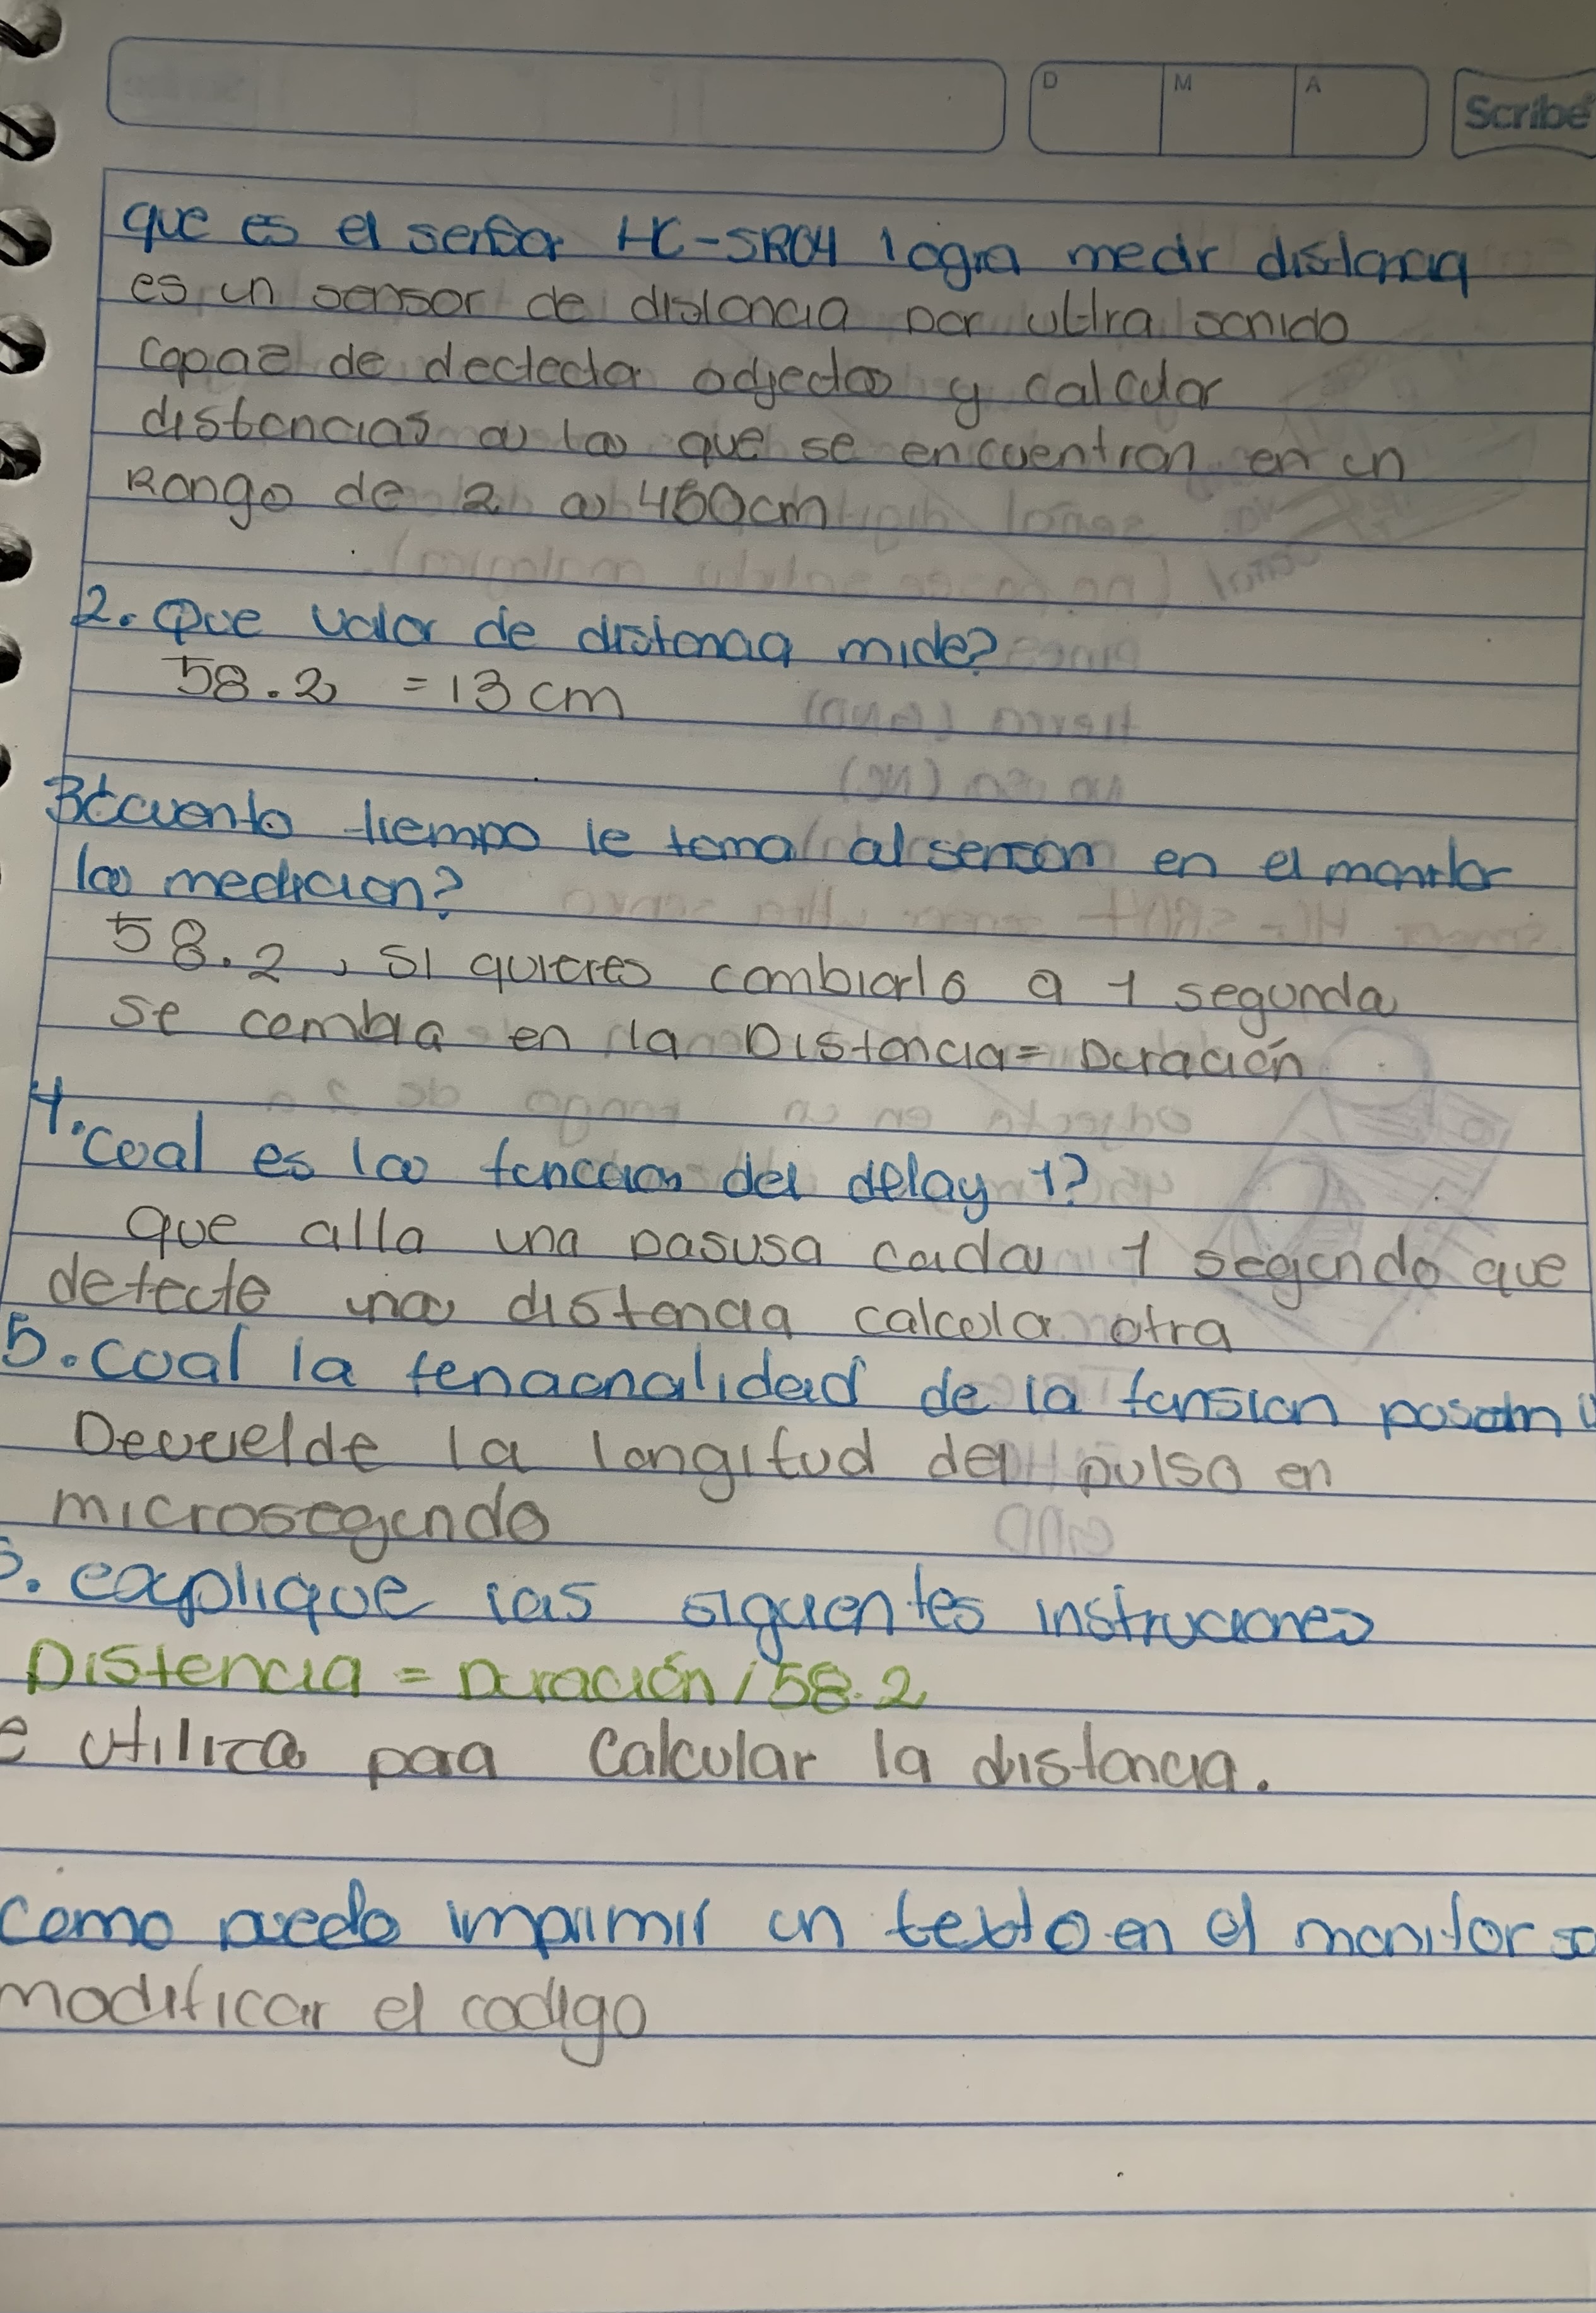 D M A Scribe
que es el sensor HC-SR04 logra medir distancia
es un sensor de distancia por ultra sonido
capaz de dectectar odjectos y calcular
distancias a la que se encuentran en un
Rango de 2 a 450cm
2. Que valor de distancia mide?
58.2 = 13 cm
3 cuanto tiempo le toma al sensor en el monitor
la medicion?
58.2, si quieres cambiarlo a 1 segunda
se cambia en la Distancia = Duración
4. cual es la funcion del delay 1?
que alla una pasusa cada 1 segundo que
detecte una distancia calcula otra
5. cual la
de la
Devuelde la longitud del pulso en
microsegundo
. explique las siguentes instruciones
Distencia = Duración / 58.2
e utiliza para calcular la distancia.
como puedo imprimir un texto en el monitor
modificar el codigo